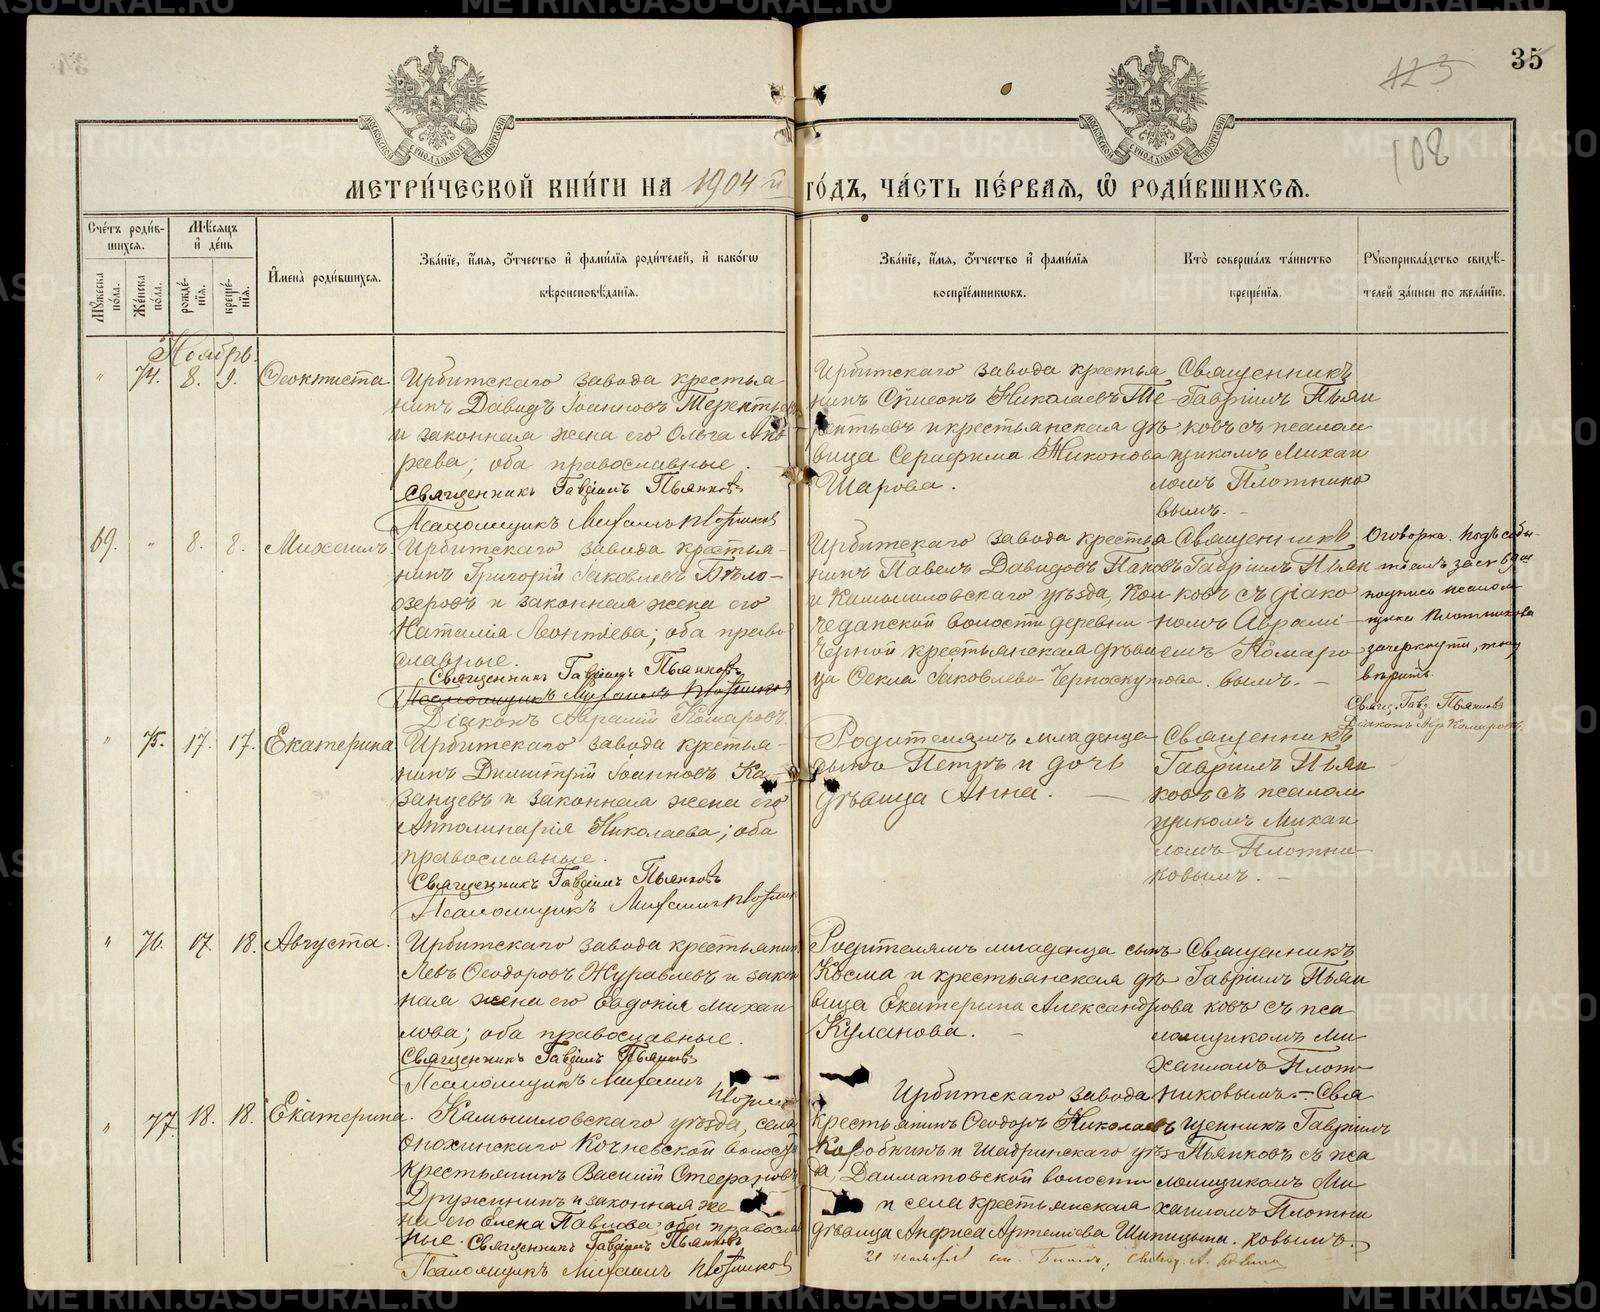 35
123
108
МЕТРИ́ЧЕСКОЙ КНИ́ГИ НА 1904 й ГО́ДЪ, ЧА́СТЬ ПЕ́РВАЯ, Ѿ РОДИ́ВШИХСЯ.
Счетъ роди́вшихся.
Мѣсяцъ и день
Имена родившихся.
Званіе, имя, отчество и фамилія родителей, и какогѡ вѣроисповѣданія.
Званіе, имя, отчество и фамилія воспріемниковъ.
Кто совершалъ таинство крещенія.
Рукоприкладство свидѣтелей записи по желанію.
Мужеска пола.
Женска пола.
рожденія.
крещенія.
Ноябрь.
" 74. 8. 9. Ѳеоктиста
Ирбитскаго завода крестья
нинъ Давидъ Іоанновъ Терентьев
и законная жена его Ольга Анд
реева; оба православные.
Священникъ Гавріилъ Пьянковъ
Псаломщикъ Михаилъ Плотников
Ирбитскаго завода крестья
нинъ Сѵмеонъ Николаевъ Те
рентьевъ и крестьянская дѣ
вица Серафима Никонова
Шарова.
Священникъ
Гавріилъ Пьян
ковъ съ псалом
щикомъ Михаи
ломъ Плотнико
вымъ.
69. " 8. 8. Михаилъ
Ирбитскаго завода крестья-
нинъ Григорій Іаковлевъ Бѣло-
озеровъ и законная жена его
Наталія Леонтіева; оба право
славные.
Священникъ Гавріилъ Пьянковъ
Псаломщикъ Михаилъ Плотников
Діаконъ Аврамій Комаровъ.
Ирбитскаго завода крестья
нинъ Павелъ Давидовъ Паковъ
и Камышловскаго уѣзда, Кон
деревни
Черной крестьянская дѣви
ца Ѳекла Іаковлева Черноскутова.
Священникъ
Гавріилъ Пьян
ковъ съ діако
номъ Аврамі
емъ Комаро
вымъ.
Оговорка.
подпись псалом-
щика Плотникова
зачеркнути, тому
вѣрить.
Свящ. Гавр. Пьянковъ
Діаконъ Авр. Комаровъ.
" 75. 17. 17. Екатерина
Ирбитскаго завода крестья-
нинъ Димитрій Іоанновъ Ка-
занцевъ и законная жена его
Апполинарія Николаева; оба
православные.
Священникъ Гавріилъ Пьянковъ
Псаломщикъ Михаилъ Плотник
Родителямъ младенца
сынъ Петръ и дочь
дѣвица Анна.
Священникъ
Гавріилъ Пьян
ковъ съ псалом
щикомъ Михаи
ломъ Плотни-
ковымъ.
" 76. 17. 18. Августа.
Ирбитскаго завода крестьянин
Левъ Ѳеодоровъ Журавлевъ и закон
ная жена его Евдокія Михаи
лова; оба православные.
Священникъ Гавріилъ Пьянковъ
Псаломщикъ Михаилъ
Плотник
Родителямъ младенца сынъ
Косма и крестьянская дѣ
вица Екатерина Александрова
Куланова.
Священникъ
Гавріилъ Пьян
ковъ съ пса
ломщикомъ Ми-
хаиломъ Плот-
никовымъ.
" 77. 18. 18. Екатерина.
Камышловскаго уѣзда, села
Онохинскаго Кочневской волости
крестьянинъ Василій Стефановъ
Дружининъ и законная же
на его Елена Павлова; оба правосла
ные. Священникъ Гавріилъ Пьянковъ
Псаломщикъ Михаилъ Плотников
Ирбитскаго завода
крестьянинъ Ѳеодоръ Николаевъ
Коробкинъ и Шадринскаго уѣз-
да, Далматовской волости
и села крестьянская
дѣвица Анфиса Артеміева Шипицына.
Свя
щенникъ Гавріилъ
Пьянковъ съ пса
ломщикомъ Ми
хаиломъ Плотни
ковымъ.
21 ноября